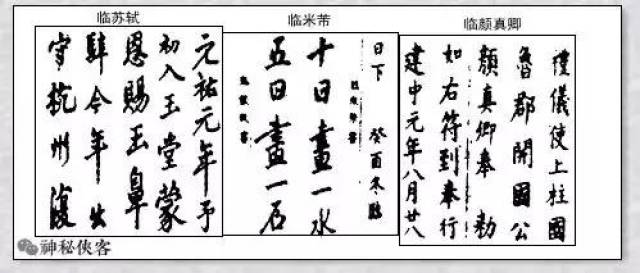 临苏轼
元祐元年予
初入玉堂蒙
恩賜玉鼻
騂今年出
守杭州復
临米芾
日下
癸酉
十日畫一水
五日畫一石
临颜真卿
禮儀使上柱國
魯郡開國公
顏真卿奉 勅
如右符到奉行
建中元年八月廿八
神秘俠客